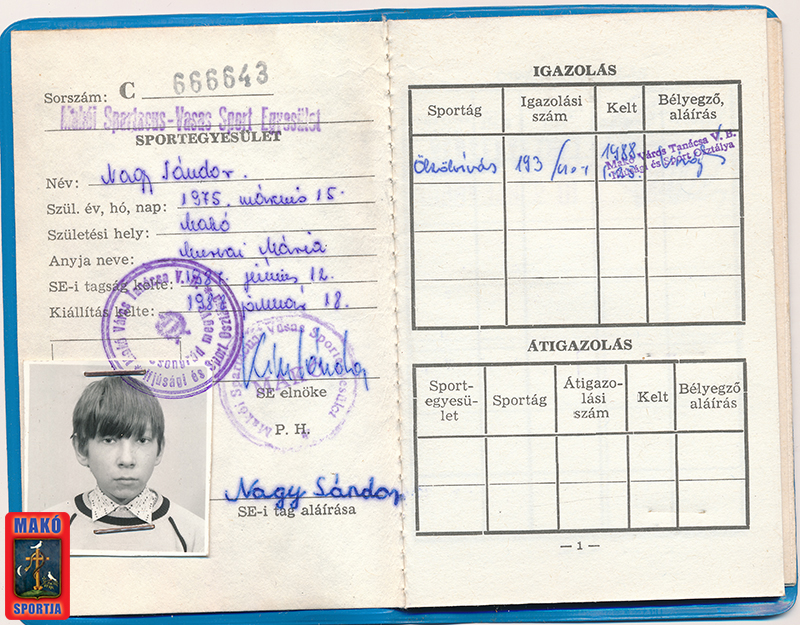 Sorszám: C 666643
Makói Spartacus-Vasas Sport Egyesület
SPORTEGYESÜLET
Név: Nagy Sándor.
Szül. év, hó, nap: 1975. március 15.
Születési hely: Makó
Anyja neve: Mária
SE-i tagság kelte: június 12.
Kiállítás kelte: január 18.
SE elnöke
P. H.
Nagy Sándor
SE-i tag aláírása
MAKÓ
SPORTJA
IGAZOLÁS
Sportág Igazolási szám Kelt Bélyegző, aláírás
Ökölvívás 193/ 1988
Makó Város Tanácsa V. B.
Ifjúsági és Sport Osztálya
ÁTIGAZOLÁS
Sport-egyesü-let Sportág Átigazo-lási szám Kelt Bélyegző aláírás
— 1 —